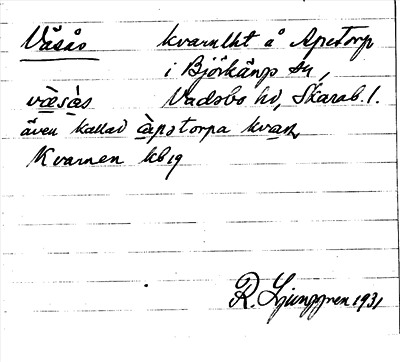 Väsås kvarnlht å Apetorp
i Björkängs sn,
væ̀sàs Vadsbo hd, Skarab. l.
även kallad àpstorpa kvarn
Kvarnen kb 19
R. Ljunggren 1931